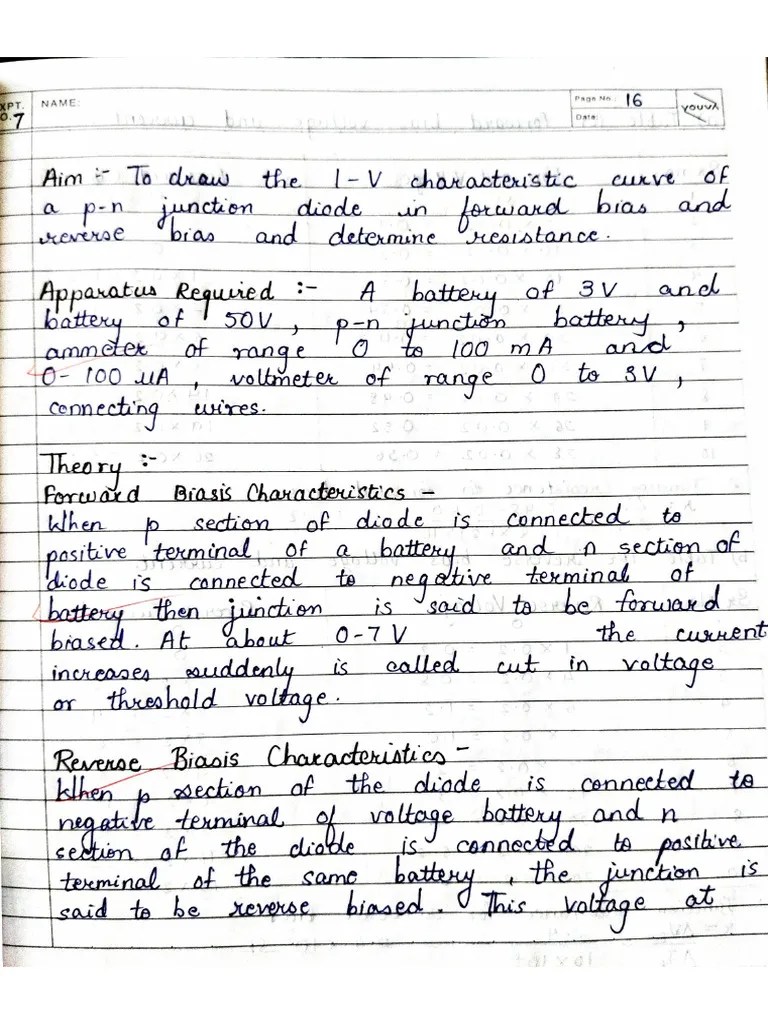 EXPT. NO. 7
NAME:
Page No.: 16
Date:
YOUVA
Aim :- To draw the I-V characteristic curve of
a p-n junction diode in forward bias and
reverse bias and determine resistance.
Apparatus Required :- A battery of 3V and
battery of 50V, p-n junction battery,
ammeter of range 0 to 100 mA and
0-100 uA, voltmeter of range 0 to 3V,
connecting wires.
Theory :-
Forward Biasis Characteristics -
When p section of diode is connected to
positive terminal of a battery and n section of
diode is connected to negative terminal of
battery then junction is said to be forward
biased. At about 0-7 V the current
increases suddenly is called cut in voltage
or threshold voltage.
Reverse Biasis Characteristics -
When p section of the diode is connected to
negative terminal of voltage battery and n
section of the diode is connected to positive
terminal of the same battery, the junction is
said to be reverse biased. This voltage at